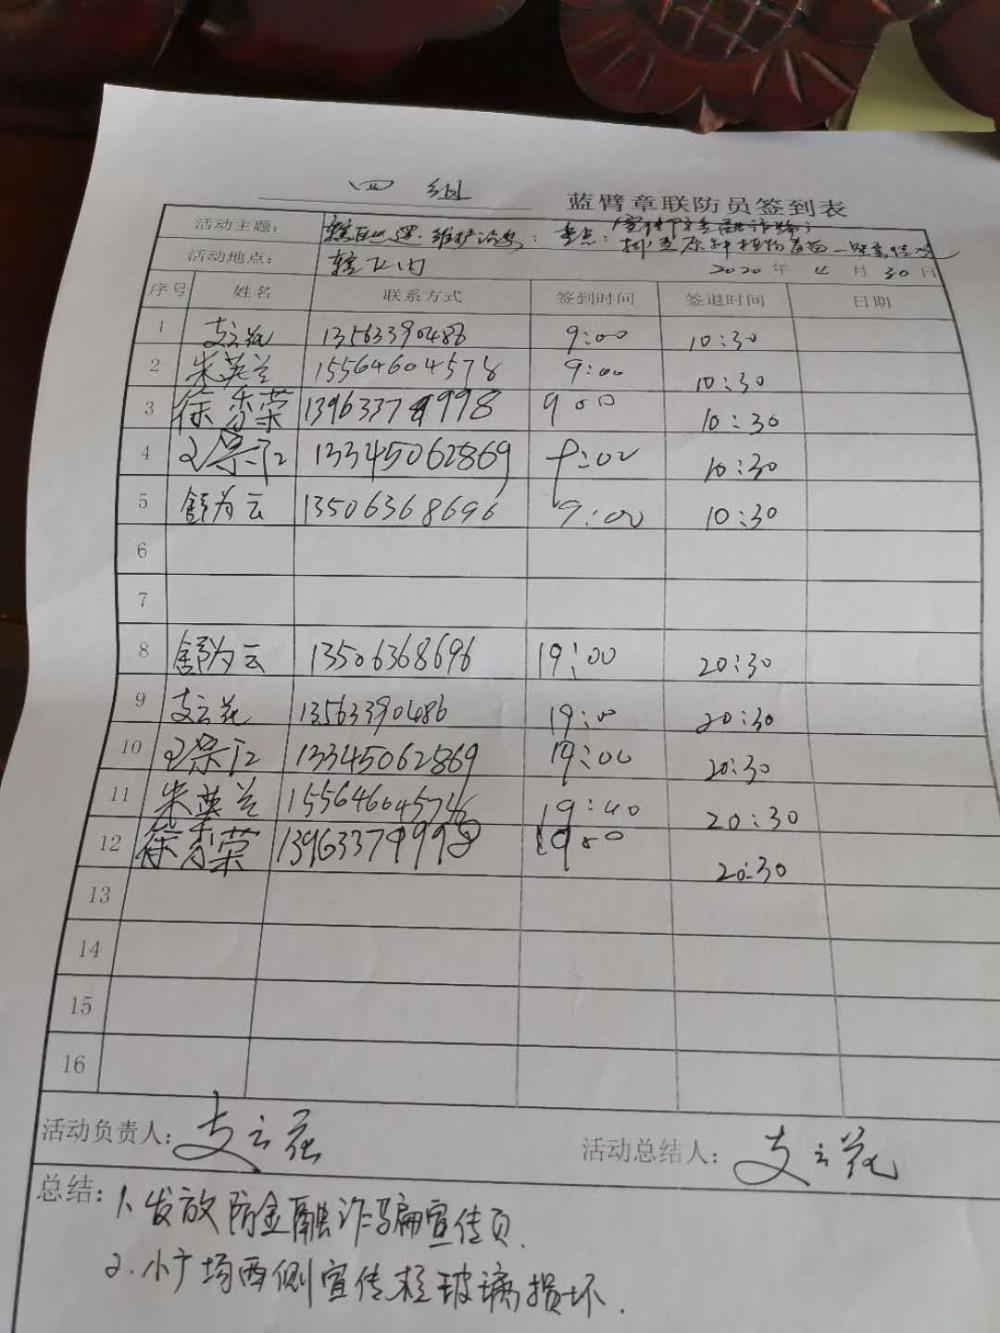 四组 蓝臂章联防员签到表
活动主题： 辖区巡逻.维护治安； 重点：
活动地点： 辖区内 2020年4月30日
序号 姓名 联系方式 签到时间 签退时间 日期
1 支云花 13563390486 9:00 10:30
2 朱英兰 15564604578 9:00 10:30
3 徐秀荣 13963379998 900 10:30
4 13345062869 9:00 10:30
5 舒为云 13506368696 9:00 10:30
6
7
8 舒为云 13506368696 19:00 20:30
9 支云花 13563390486 19:00 20:30
10 13345062869 19:00 20:30
11 朱英兰 19:40 20:30
12 徐秀荣 13963379998 1900 20:30
13
14
15
16
活动负责人： 支云花 活动总结人： 支云花
总结： 1.发放防金融诈骗宣传页.
2.小广场西侧宣传栏玻璃损坏.